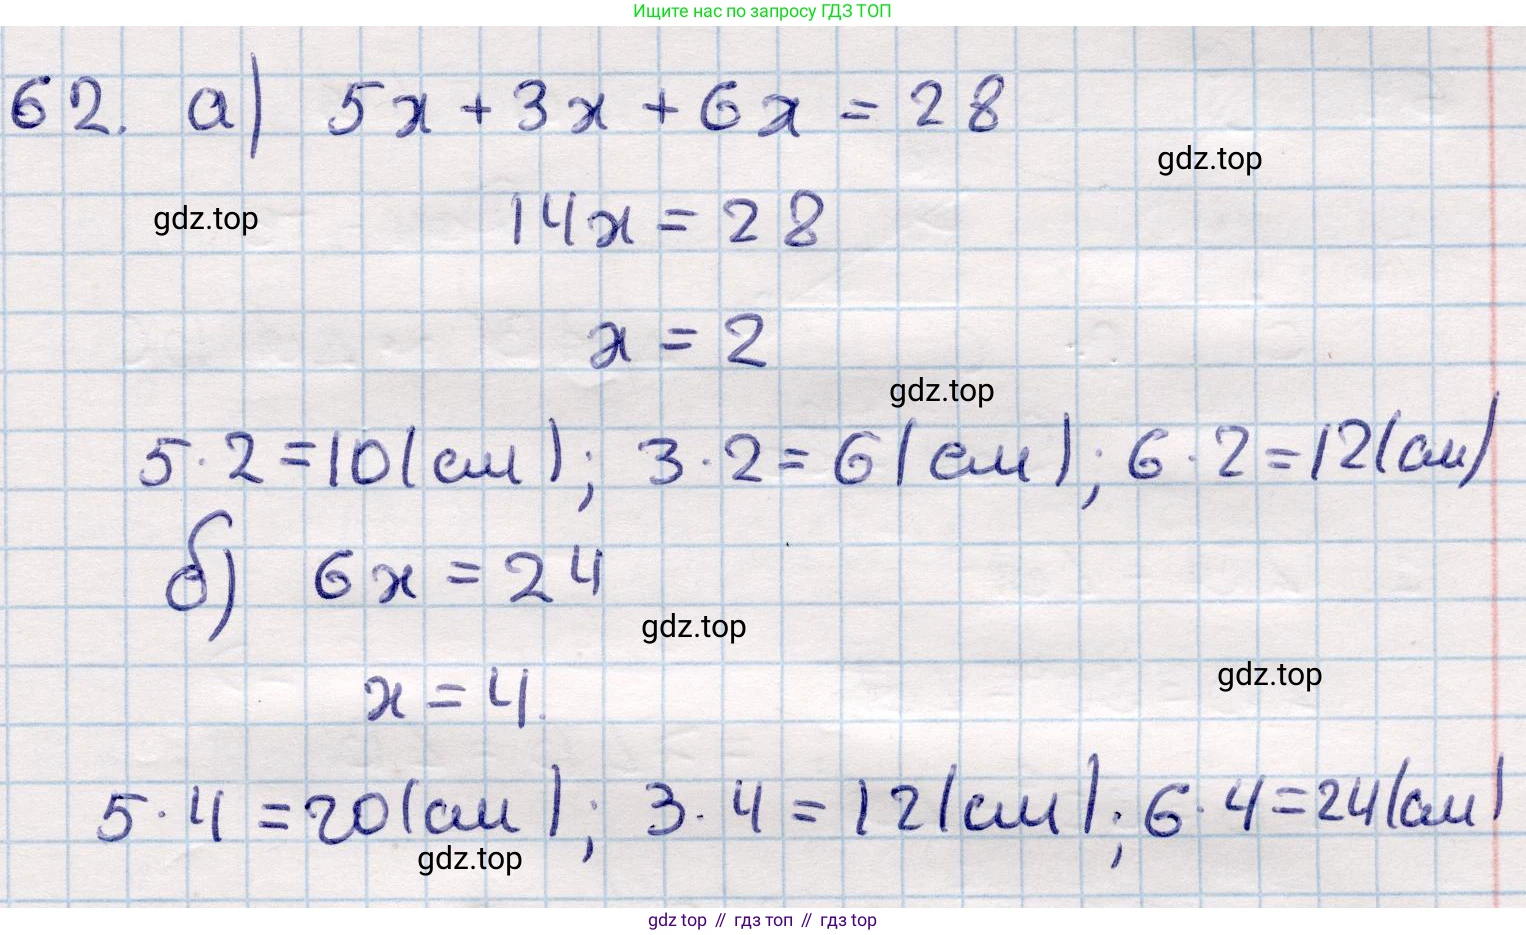 Ищите нас по запросу ГДЗ ТОП
62. а) 5x + 3x + 6x = 28
gdz.top
gdz.top
14x = 28
x = 2
gdz.top
5·2=10(см); 3·2=6(см); 6·2=12(см)
б) 6x = 24
gdz.top
gdz.top
x = 4.
5·4=20(см); 3·4=12(см); 6·4=24(см)
gdz.top
gdz top // гдз топ // гдз top